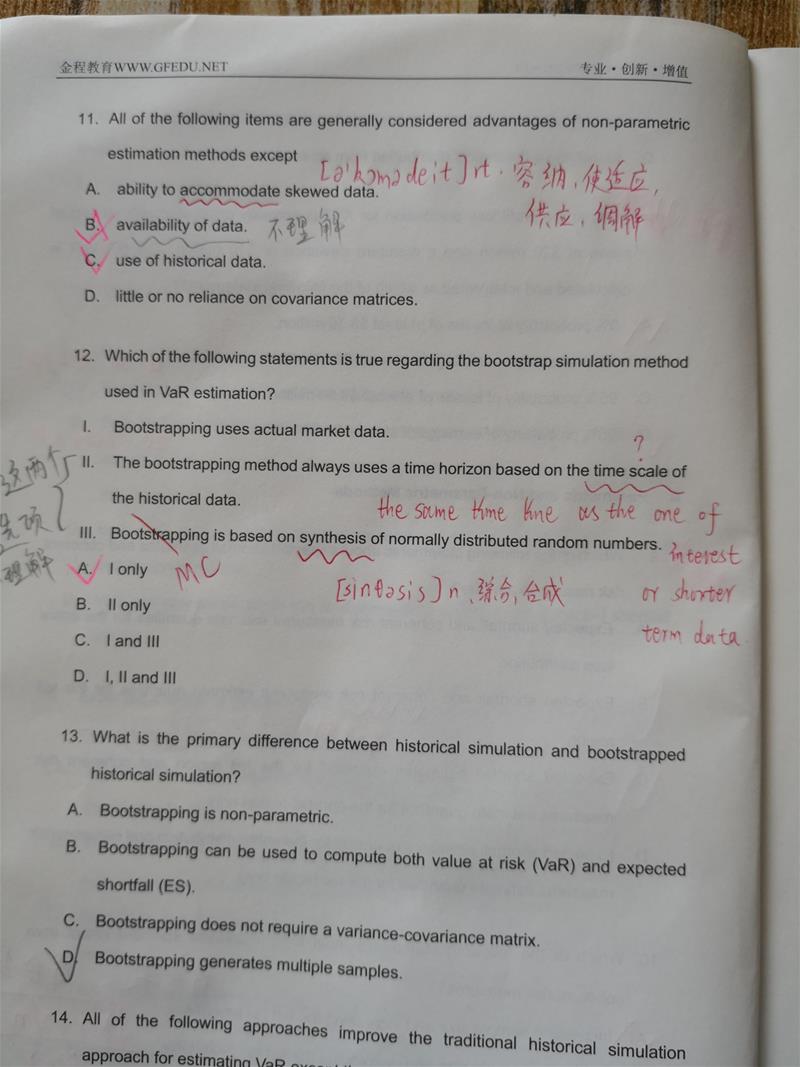 金程教育WWW.GFEDU.NET 专业·创新·增值
11. All of the following items are generally considered advantages of non-parametric
estimation methods except
[ə'kɔmədeit] vt. 容纳,使适应,
A. ability to accommodate skewed data.
供应,调解
B. availability of data. 不理解
C. use of historical data.
D. little or no reliance on covariance matrices.
12. Which of the following statements is true regarding the bootstrap simulation method
used in VaR estimation?
I. Bootstrapping uses actual market data.
?
这两个
II. The bootstrapping method always uses a time horizon based on the time scale of
the historical data.
the same time line as the one of
选项
III. Bootstrapping is based on synthesis of normally distributed random numbers.
interest
理解
A. I only MC
[sinθəsis] n. 综合,合成
or shorter
B. II only
term data
C. I and III
D. I, II and III
13. What is the primary difference between historical simulation and bootstrapped
historical simulation?
A. Bootstrapping is non-parametric.
B. Bootstrapping can be used to compute both value at risk (VaR) and expected
shortfall (ES).
C. Bootstrapping does not require a variance-covariance matrix.
D. Bootstrapping generates multiple samples.
14. All of the following approaches improve the traditional historical simulation
approach for estimating VaR